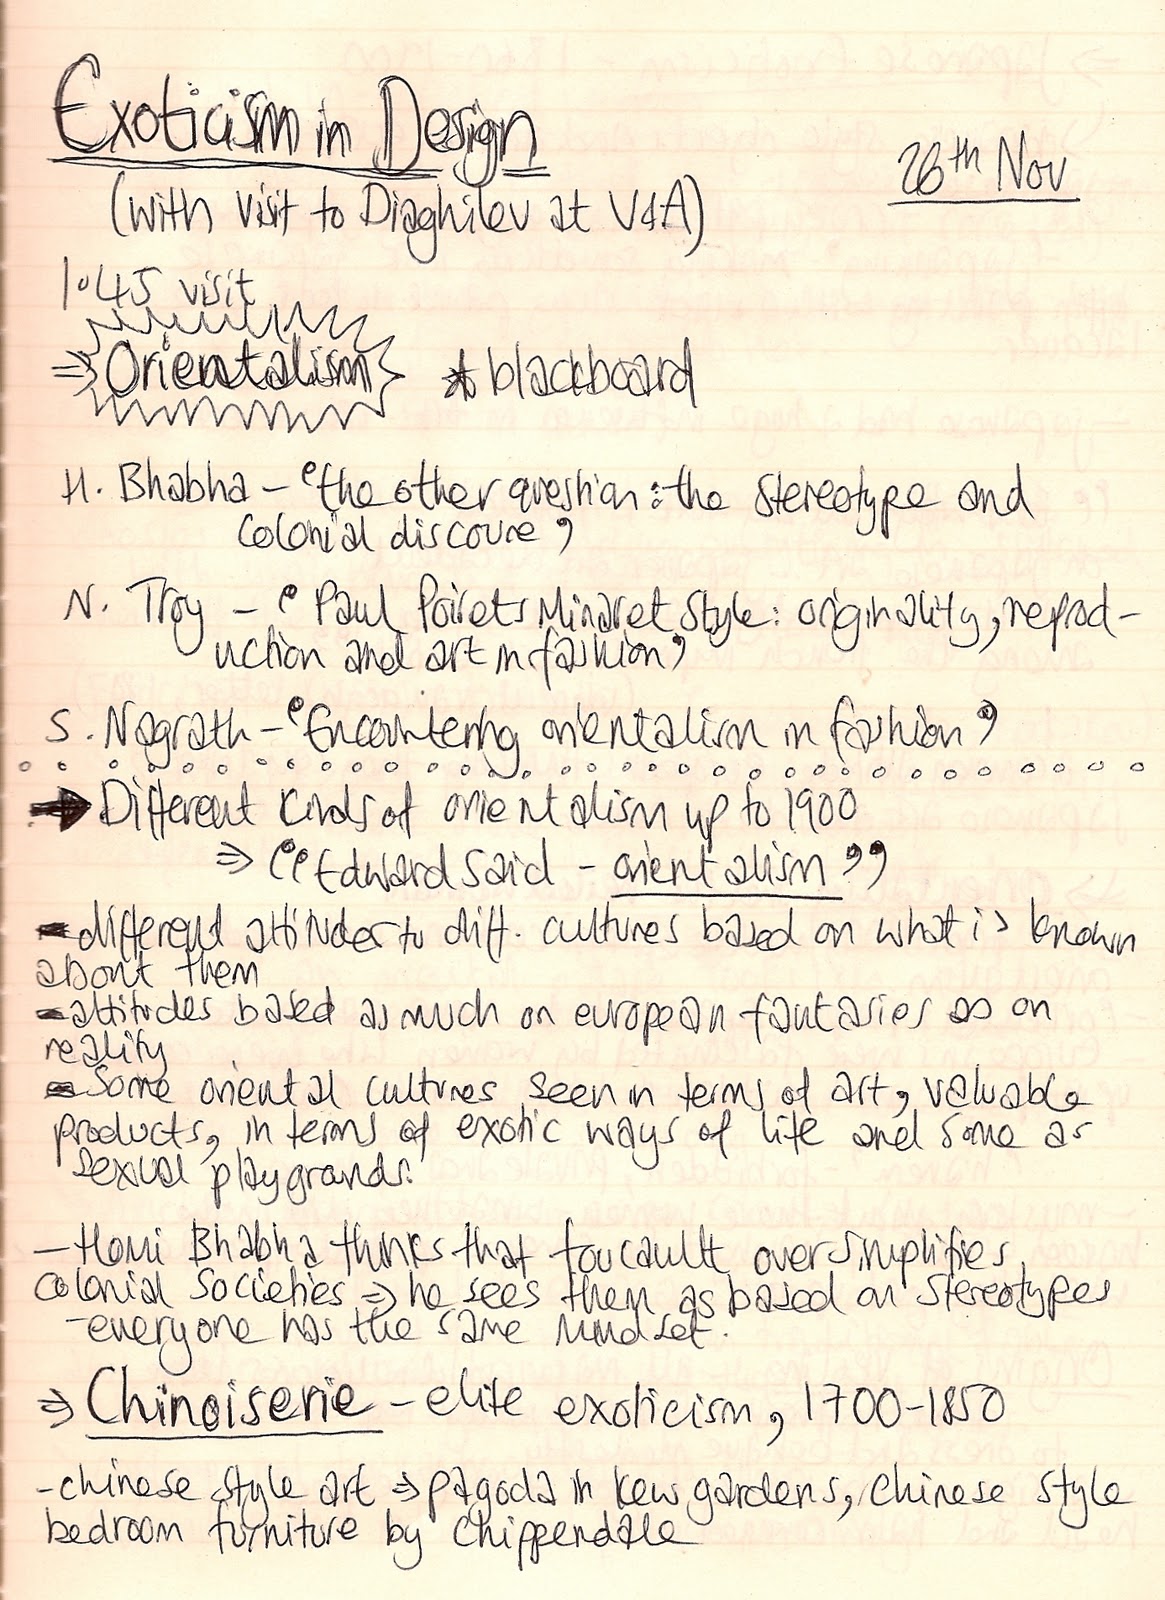 Exoticism in Design
26th Nov
(with visit to Diaghilev at V&A)
1.45 visit
⇒ Orientalism * blackboard
H. Bhabha – 'the other question: the stereotype and
colonial discoure'
N. Troy – 'Paul Poirets Minaret Style: originality, reprod-
uction and art in fashion'
S. Nagrath – 'Encountering orientalism in fashion'
→ Different kinds of orientalism up to 1900
⇒ "Edward Said – orientalism"
- different attitudes to diff. cultures based on what is known
about them
- attitudes based as much on european fantasies as on
reality
- Some oriental cultures seen in terms of art, valuable
products, in terms of exotic ways of life and some as
sexual playgrands.
– Homi Bhabha thinks that foucault oversimplifies
colonial societies ⇒ he sees them as based on stereotypes
- everyone has the same mindset.
⇒ Chinoiserie – elite exoticism, 1700-1850
- chinese style art ⇒ pagoda in kew gardens, chinese style
bedroom furniture by chippendale